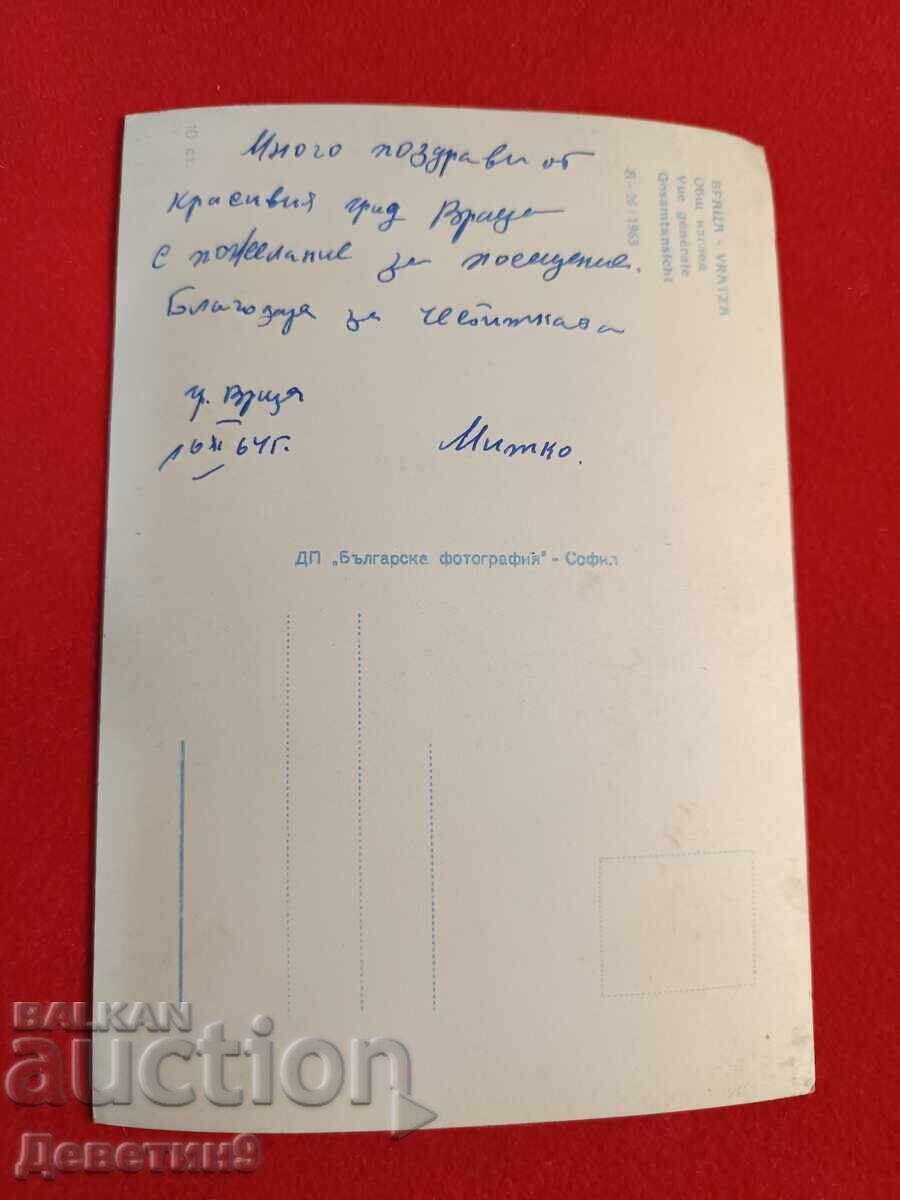 Много поздрави от
красивия град Враца
с пожелание за посещение.
Благодаря за честитката
гр. Враца
64 г.
Митко.
10 ст.
ВРАЦА - VRATZA
Общ изглед
Vue générale
Gesamtansicht
1963
ДП „Българска фотография" - София
BALKAN
auction
Деветин9